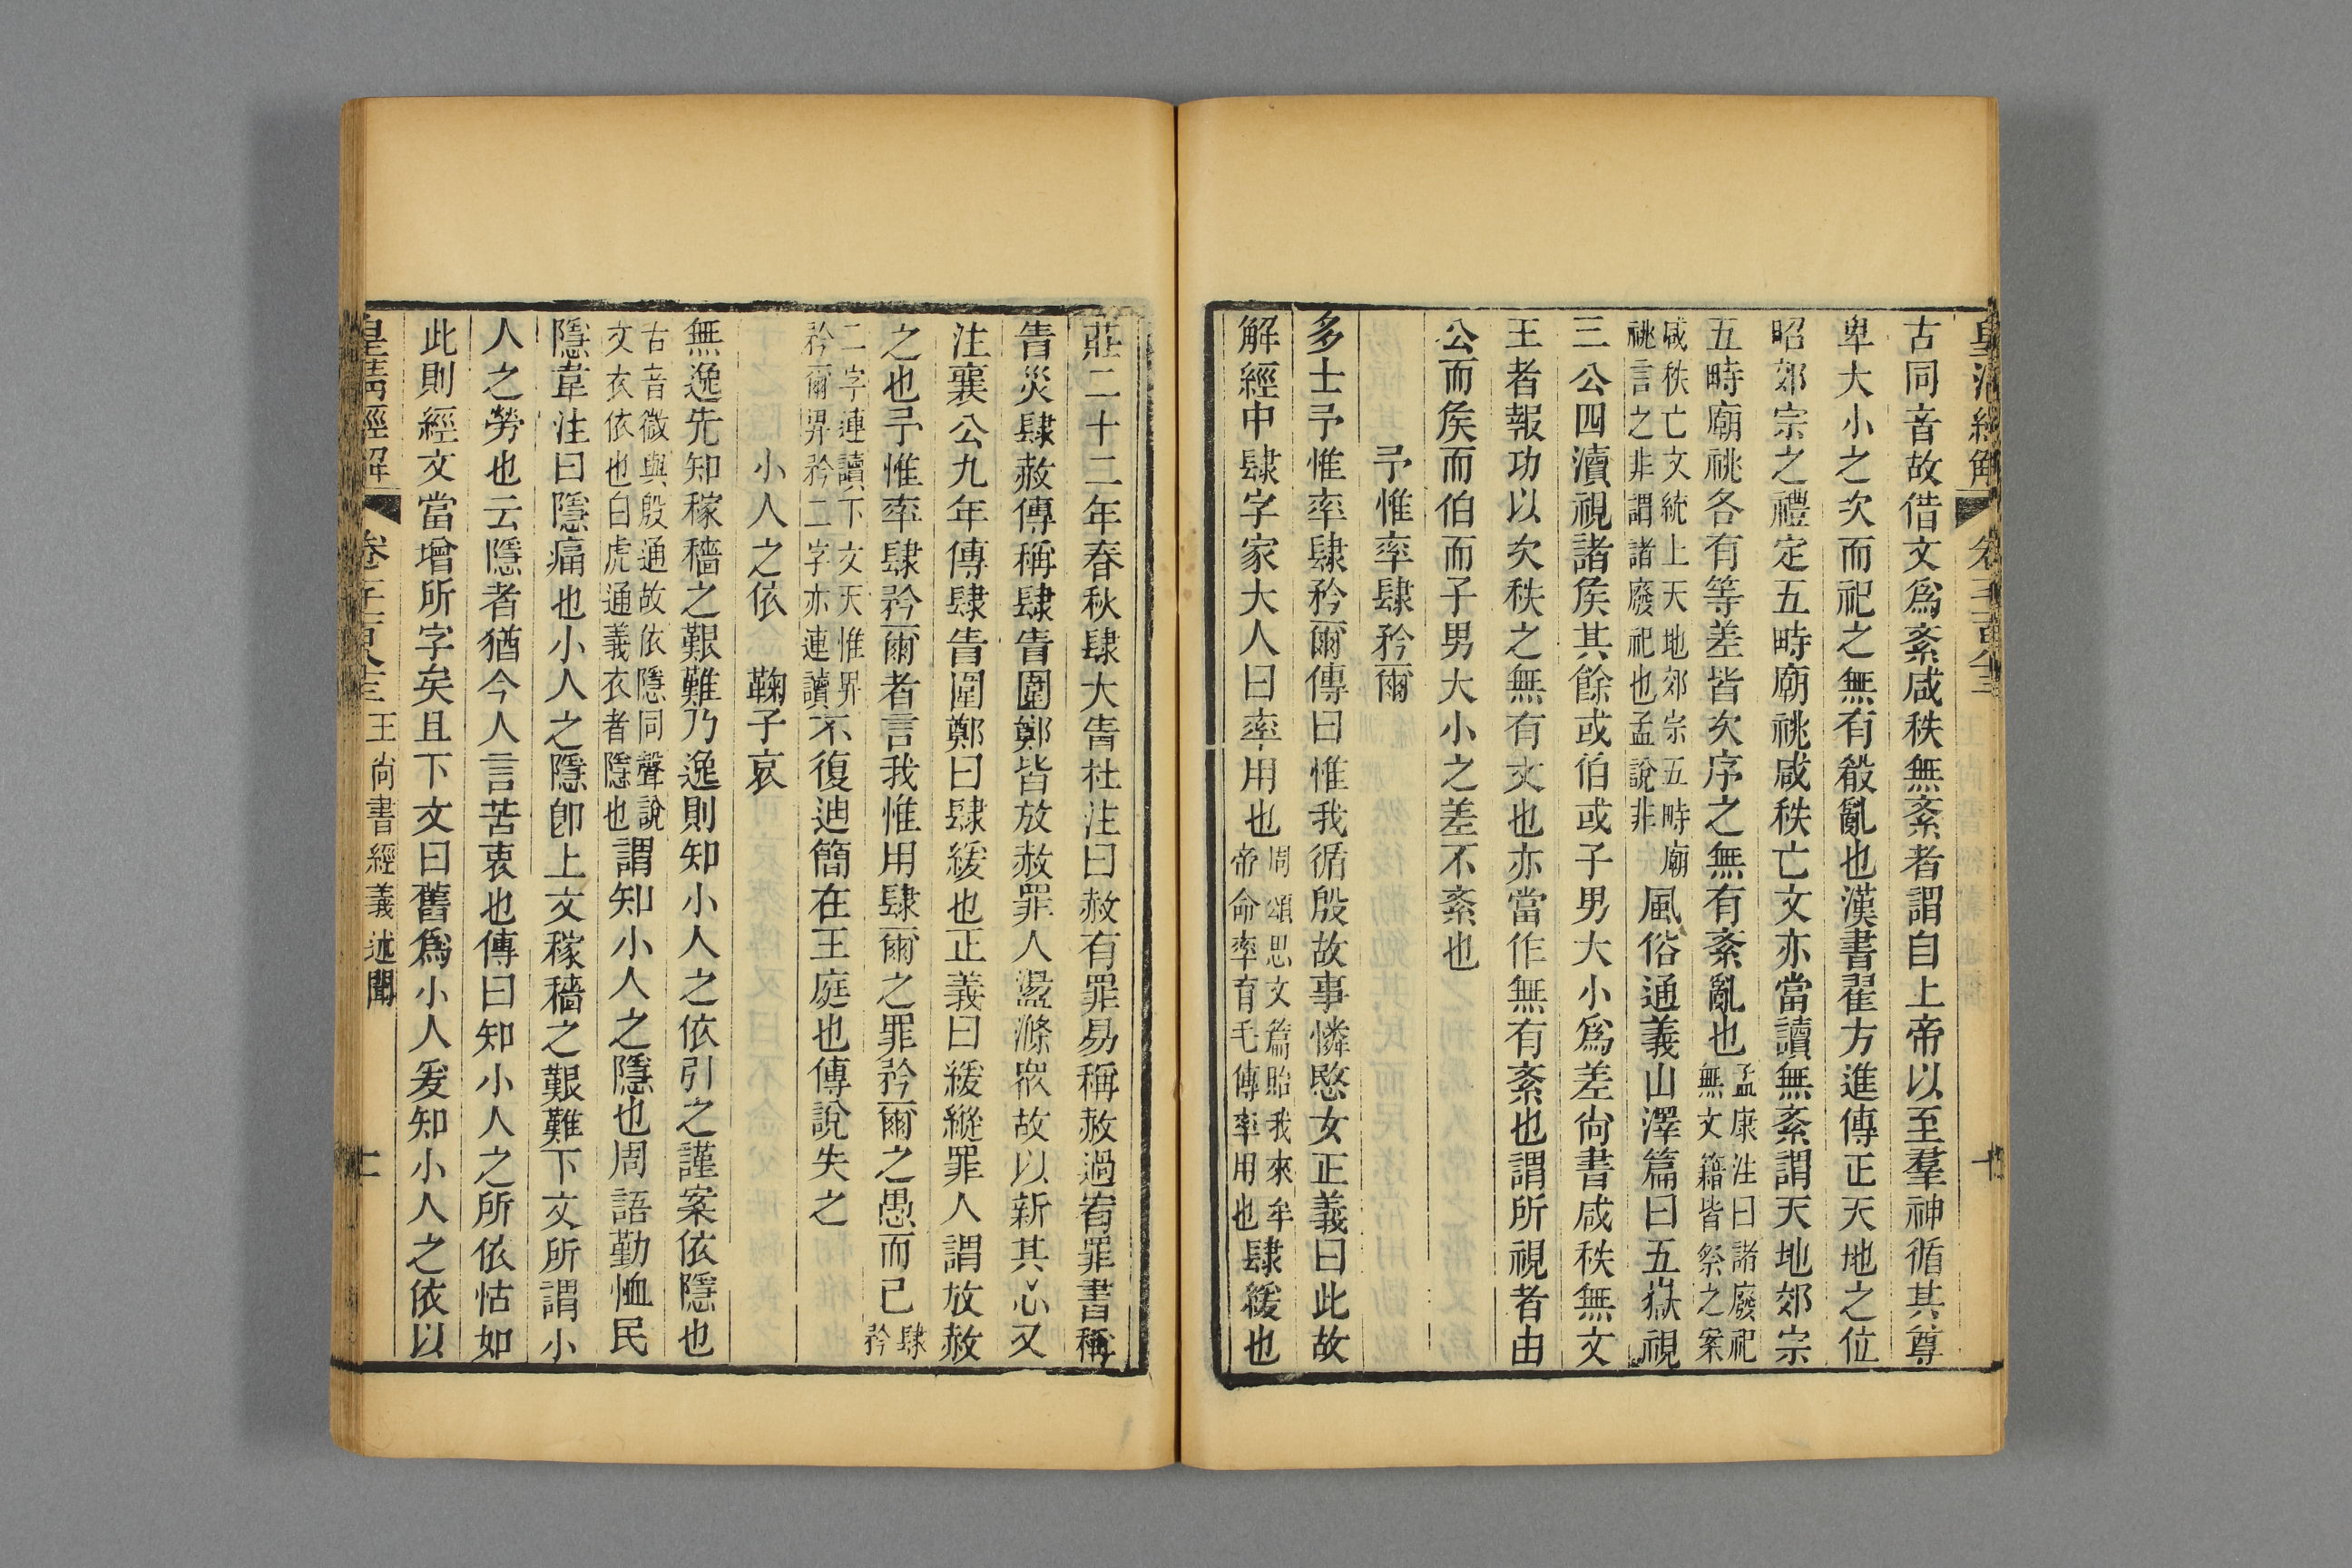 古同音故借文爲紊咸秩無紊者謂自上帝以至羣神循其尊
卑大小之次而祀之無有殽亂也漢書翟方進傳正天地之位
昭郊宗之禮定五畤廟祧咸秩亡文亦當讀無紊謂天地郊宗
五畤廟祧各有等差皆次序之無有紊亂也孟康注曰諸廢祀無文籍皆祭之案
咸秩亡文統上天地郊宗五畤廟祧言之非謂諸廢祀也孟說非風俗通義山澤篇曰五嶽視
三公四瀆視諸矦其餘或伯或子男大小爲差尙書咸秩無文
王者報功以次秩之無有文也亦當作無有紊也謂所視者由
公而矦而伯而子男大小之差不紊也
予惟率肆矜爾
多士予惟率肆矜爾傳曰惟我循殷故事憐愍女正義曰此故
解經中肆字家大人曰率用也周頌思文篇貽我來牟帝命率育毛傳率用也肆緩也
莊二十二年春秋肆大眚杜注曰赦有罪易稱赦過宥罪書稱
眚災肆赦傳稱肆眚圍鄭皆放赦罪人盪滌衆故以新其心又
注襄公九年傳肆眚圍鄭曰肆緩也正義曰緩縱罪人謂放赦
之也予惟率肆矜爾者言我惟用肆爾之罪矜爾之愚而已肆矜
二字連讀下文天惟畀矜爾畀矜二字亦連讀不復迪簡在王庭也傳說失之
小人之依　鞠子哀
無逸先知稼穡之艱難乃逸則知小人之依引之謹案依隱也
古音微與殷通故依隱同聲說文衣依也白虎通義衣者隱也謂知小人之隱也周語勤恤民
隱韋注曰隱痛也小人之隱卽上文稼穡之艱難下文所謂小
人之勞也云隱者猶今人言苦衷也傳曰知小人之所依怙如
此則經文當增所字矣且下文曰舊爲小人爰知小人之依以
皇清經解
王尙書經義述聞